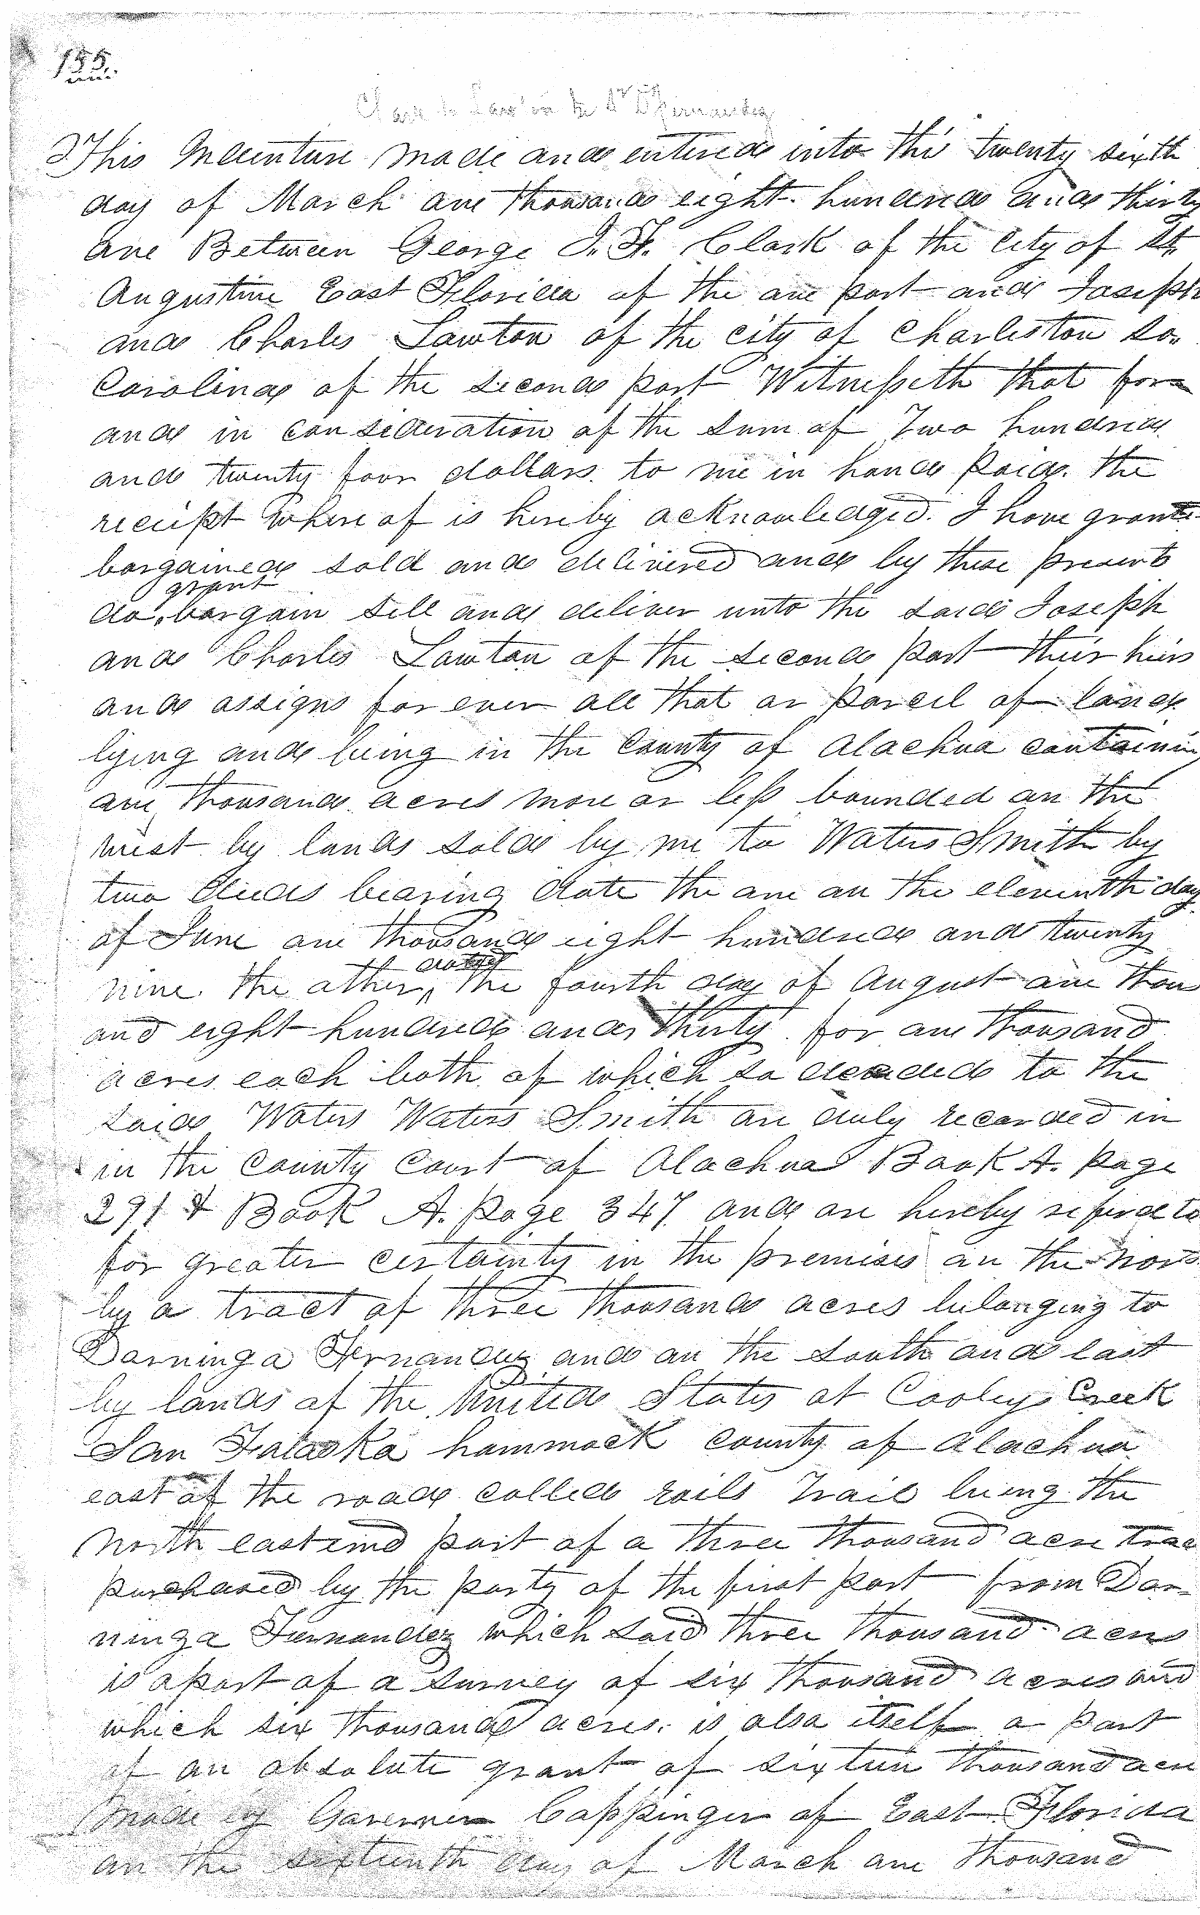 155.
This Indenture made and entered into the twenty sixth
day of March one thousand eight hundred and thirty
one Between George J. F. Clark of the City of St.
Augustine East Florida of the one part and Joseph
and Charles Lawton of the city of Charleston So.
Carolina of the second part Witnesseth that for
and in consideration of the sum of Two hundred
and twenty four dollars to me in hand paid. the
receipt whereof is hereby acknowledged. I have grante
bargained sold and delivered and by these presents
grant
do, bargain sell and deliver unto the said Joseph
and Charles Lawton of the second part their heirs
and assigns for ever all that or parcel of land
lying and being in the County of Alachua containing
one thousand acres more or less bounded on the
west by lands sold by me to Waters Smith by
two deeds bearing date the one on the eleventh day
of June one thousand eight hundred and twenty
dated
nine. the other, the fourth day of August one thous
and eight hundred and thirty for one thousand
acres each both of which so deeded to the
said Waters Waters Smith are duly recorded in
in the County Court of Alachua Book A. page
291 & Book A. page 347 and are hereby refered to
for greater certainty in the premises on the north
by a tract of three thousand acres belonging to
Darninga Fernandez and on the south and east
by lands of the United States at Cooley Creek
San Falaska hammock county of Alachua
east of the road called rails Trail being the
north east end part of a three thousand acre trac
purchased by the party of the first part from Dar-
ninga Fernandez which said three thousand acres
is a part of a survey of six thousand acres and
which six thousand acres. is also itself a part
of an absolute grant of sixteen thousand acre
made by Governer Coppinger of East Florida
on the sixteenth day of March one thousand